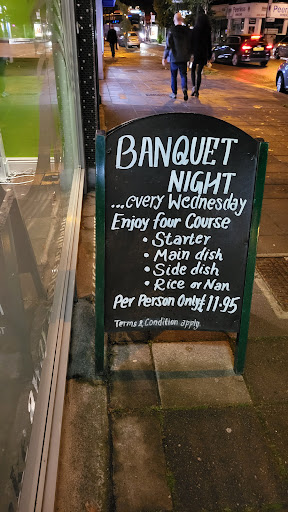 BANQUET
NIGHT
...every Wednesday
Enjoy four Course
• Starter
• Main dish
• Side dish
• Rice or Nan
Per Person Only £11.95
Terms & Condition apply